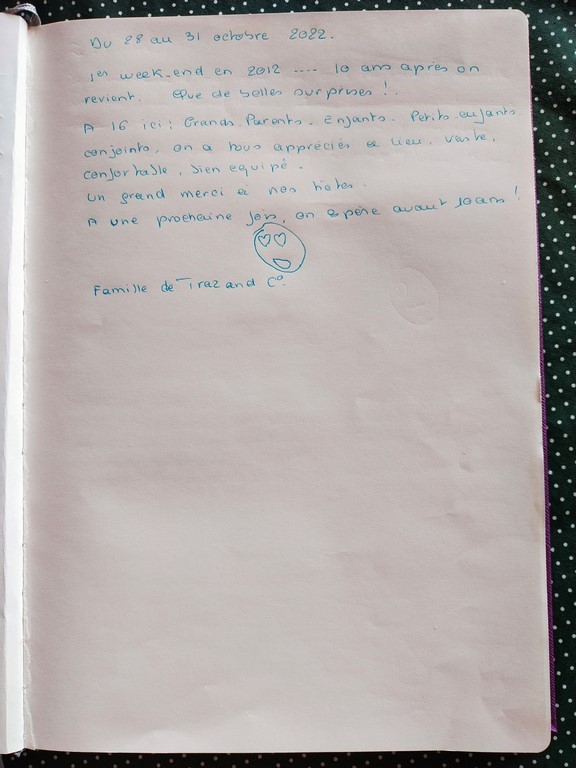 Du 28 au 31 octobre 2022.
1er week-end en 2012 .... 10 ans après on
revient. Que de belles surprises !.
A 16 ici : Grands-Parents. Enfants. Petits enfants
conjoints, on a tous appréciés ce lieu, vaste,
confortable, bien equipé.
Un grand merci à nos hôtes.
A une prochaine fois, on espère avant 10 ans !
Famille de Traz and C°.